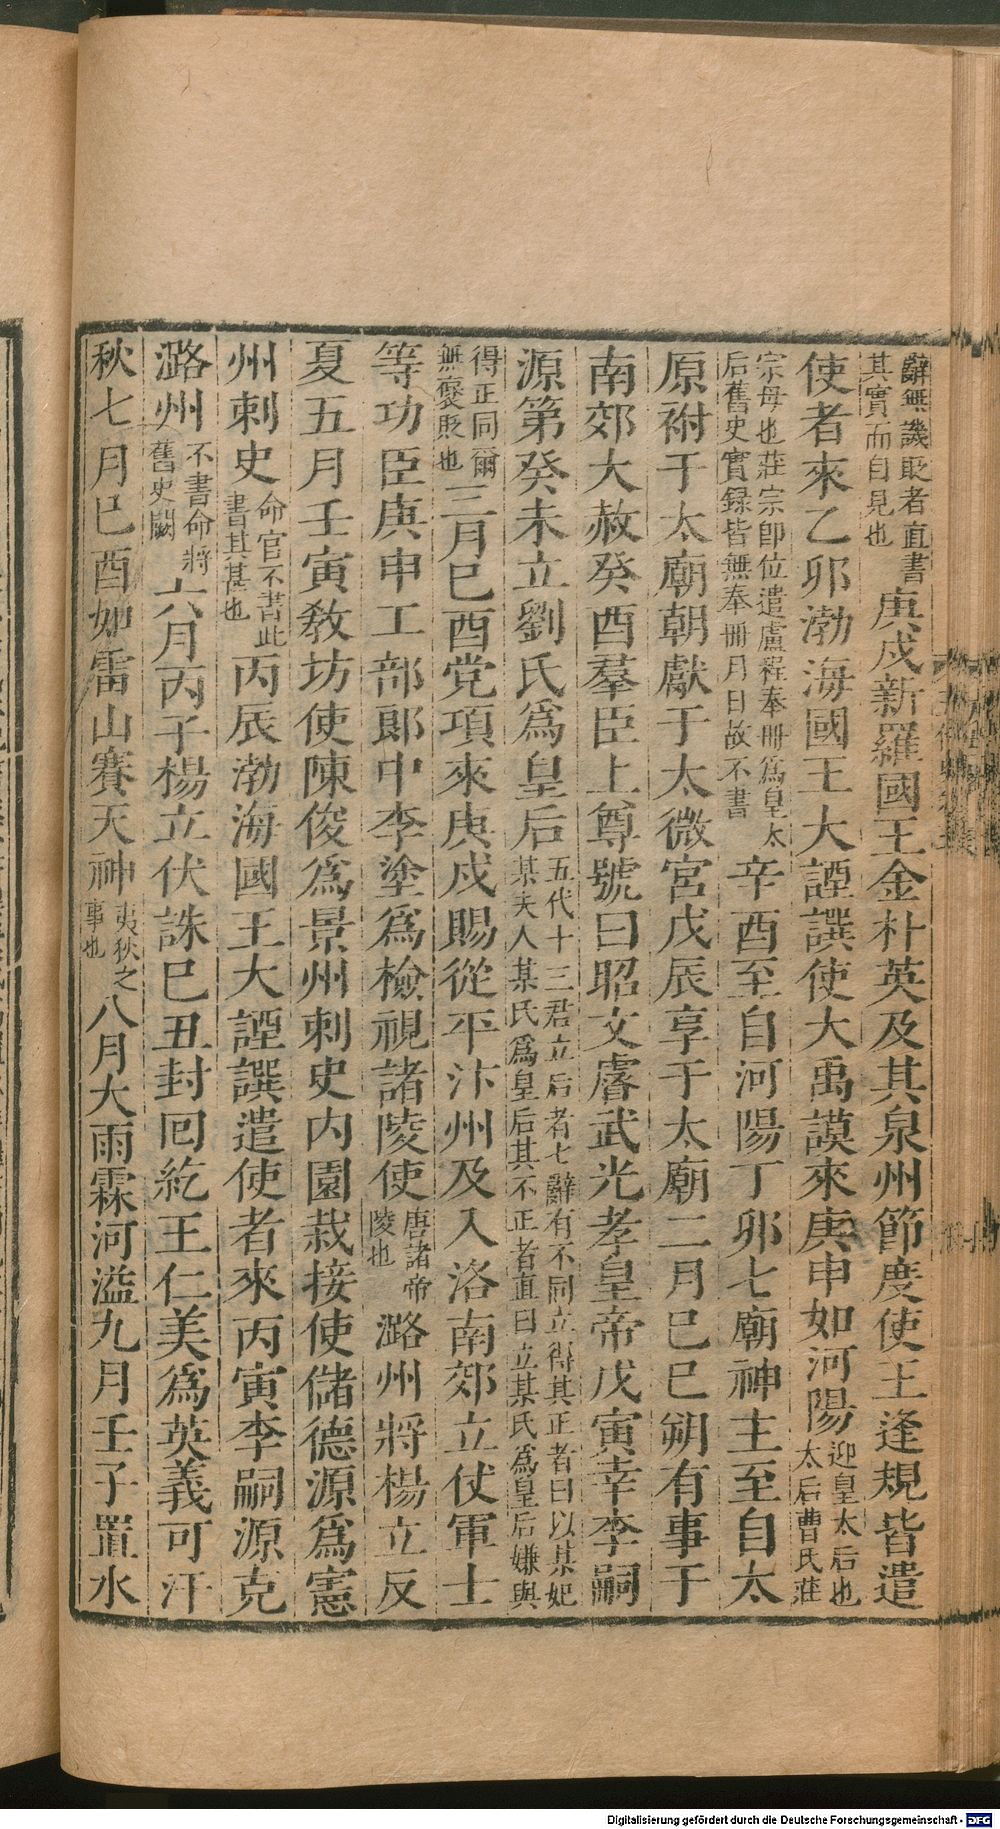 辭無譏貶者直書其實而自見也庚戍新羅國王金朴英及其泉州節度使王逢規皆遣
使者來乙卯渤海國王大諲譔使大禹謨來庚申如河陽迎皇太后也太后曹氏莊
宗母也莊宗卽位遣盧程奉冊爲皇太后舊史實録皆無奉冊月日故不書辛酉至自河陽丁卯七廟神主至自太
原祔于太廟朝獻于太微宮戊辰享于太廟二月己巳朔有事于
南郊大赦癸酉羣臣上尊號曰昭文睿武光孝皇帝戊寅幸李嗣
源第癸未立劉氏爲皇后五代十三君立后者七辭有不同立得其正者曰以某妃某夫人某氏爲皇后其不正者直曰立某氏爲皇后嫌與
得正同爾無襃貶也三月已酉党項來庚戍賜從平汴州及入洛南郊立仗軍士
等功臣庚申工部郞中李塗爲檢視諸陵使唐諸帝陵也潞州將楊立反
夏五月壬寅敎坊使陳俊爲景州刺史内園栽接使儲德源爲憲
州刺史命官不書此書其甚也丙辰渤海國王大諲譔遣使者來丙寅李嗣源克
潞州不書命將舊史闕六月丙子楊立伏誅巳丑封囘紇王仁美爲英義可汗
秋七月巳酉如雷山賽天神夷狄之事也八月大雨霖河溢九月壬子置水
Digitalisierung gefördert durch die Deutsche Forschungsgemeinschaft - DFG